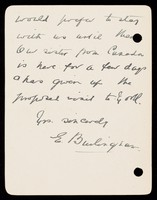 would prefer to stay
with us until then
Our sister from Canada
is here for a few days
& have given up the
proposed visit to
Yrs. sincerely
E. Burlingham